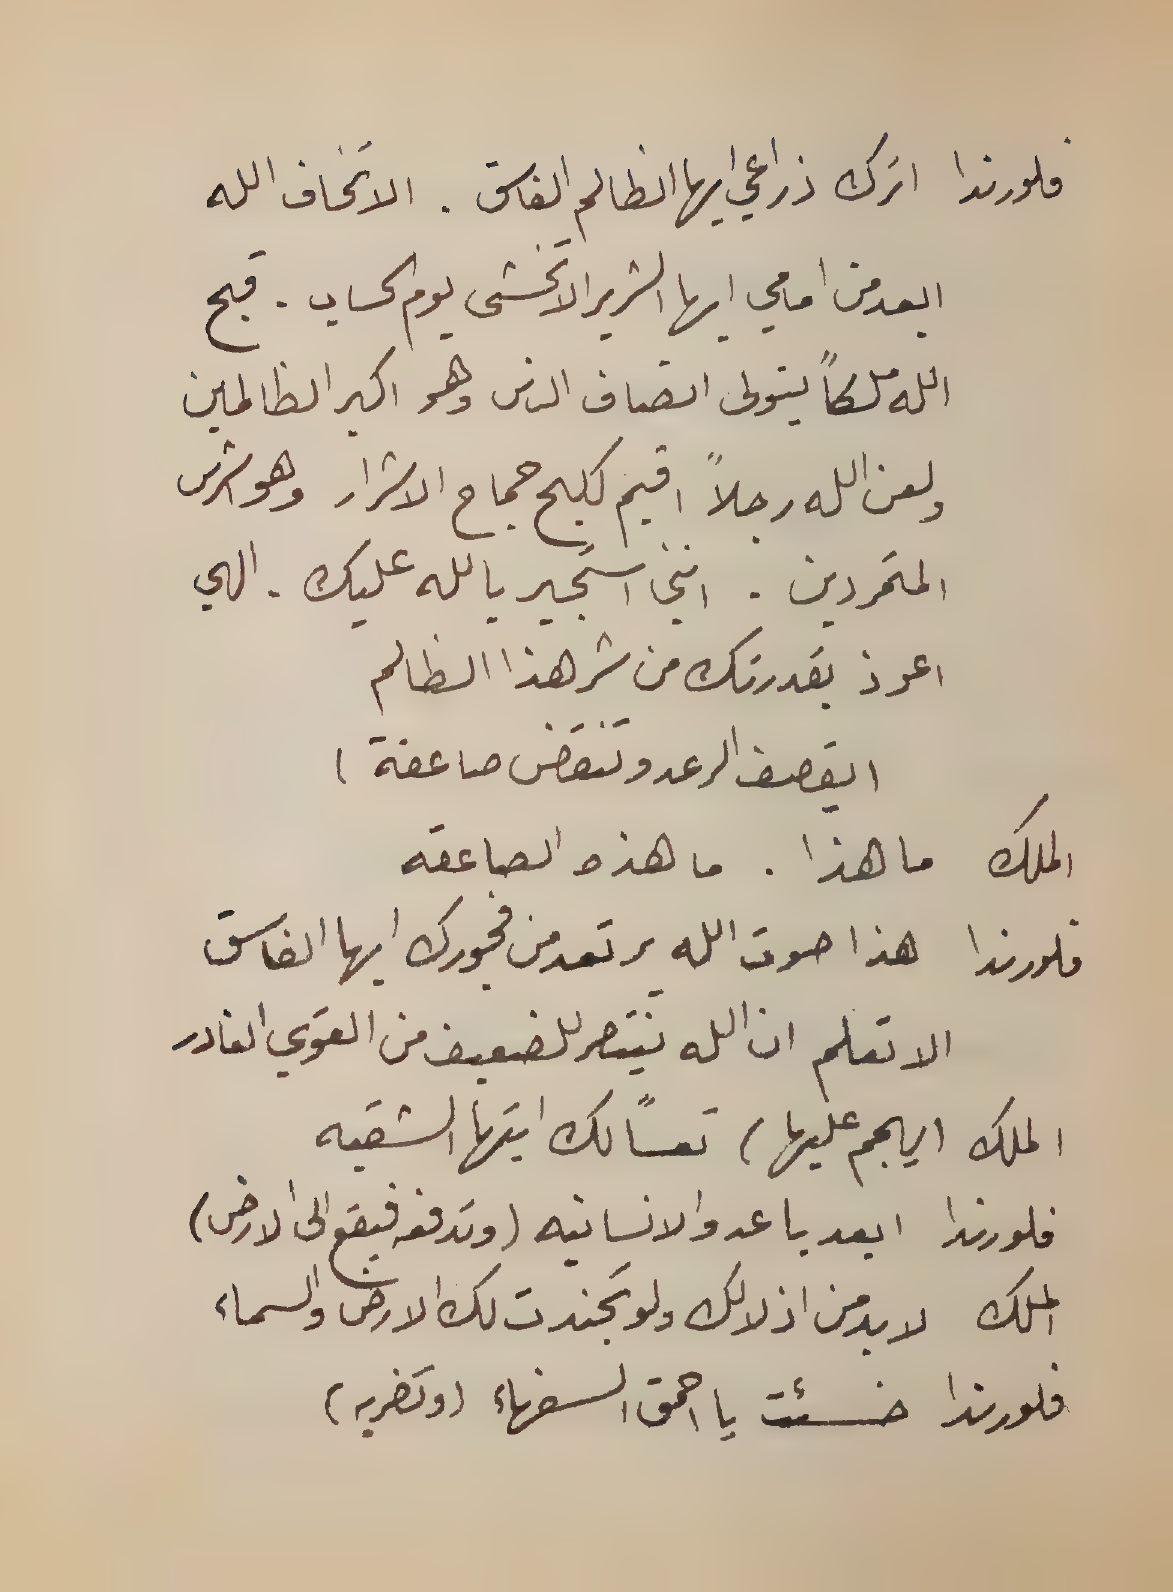 فلورندا اترك ذراعي ايها الظالم الفاسق . الا تخاف الله
ابعد من امامي ايها الشرير الا تخشى يوم الحساب . قبح
الله ملكاً يتولى انصاف الناس وهو اكبر الظالمين
ولعن الله رجلاً اقيم لكبح جماح الاشرار وهو اشرس
المتمردين . انني استجير بالله عليك . الهي
اعوذ بقدرتك من شر هذا الظالم
(يقصف الرعد وتنقض صاعقة)
الملك ما هذا . ما هذه الصاعقه
فلورندا هذا صوت الله يرتعد من فجورك ايها الفاسق
الا تعلم ان الله ينتصر للضعيف من القوي الغادر
الملك (يهجم عليها) تعساً لك ايتها الشقيه
فلورندا ابعد يا عدو الانسانيه (وتدفعه فيقع الى الارض)
الملك لا بد من اذلالك ولو تجندت لك الارض والسماء
فلورندا خسئت يا احمق السفهاء (وتضربه)